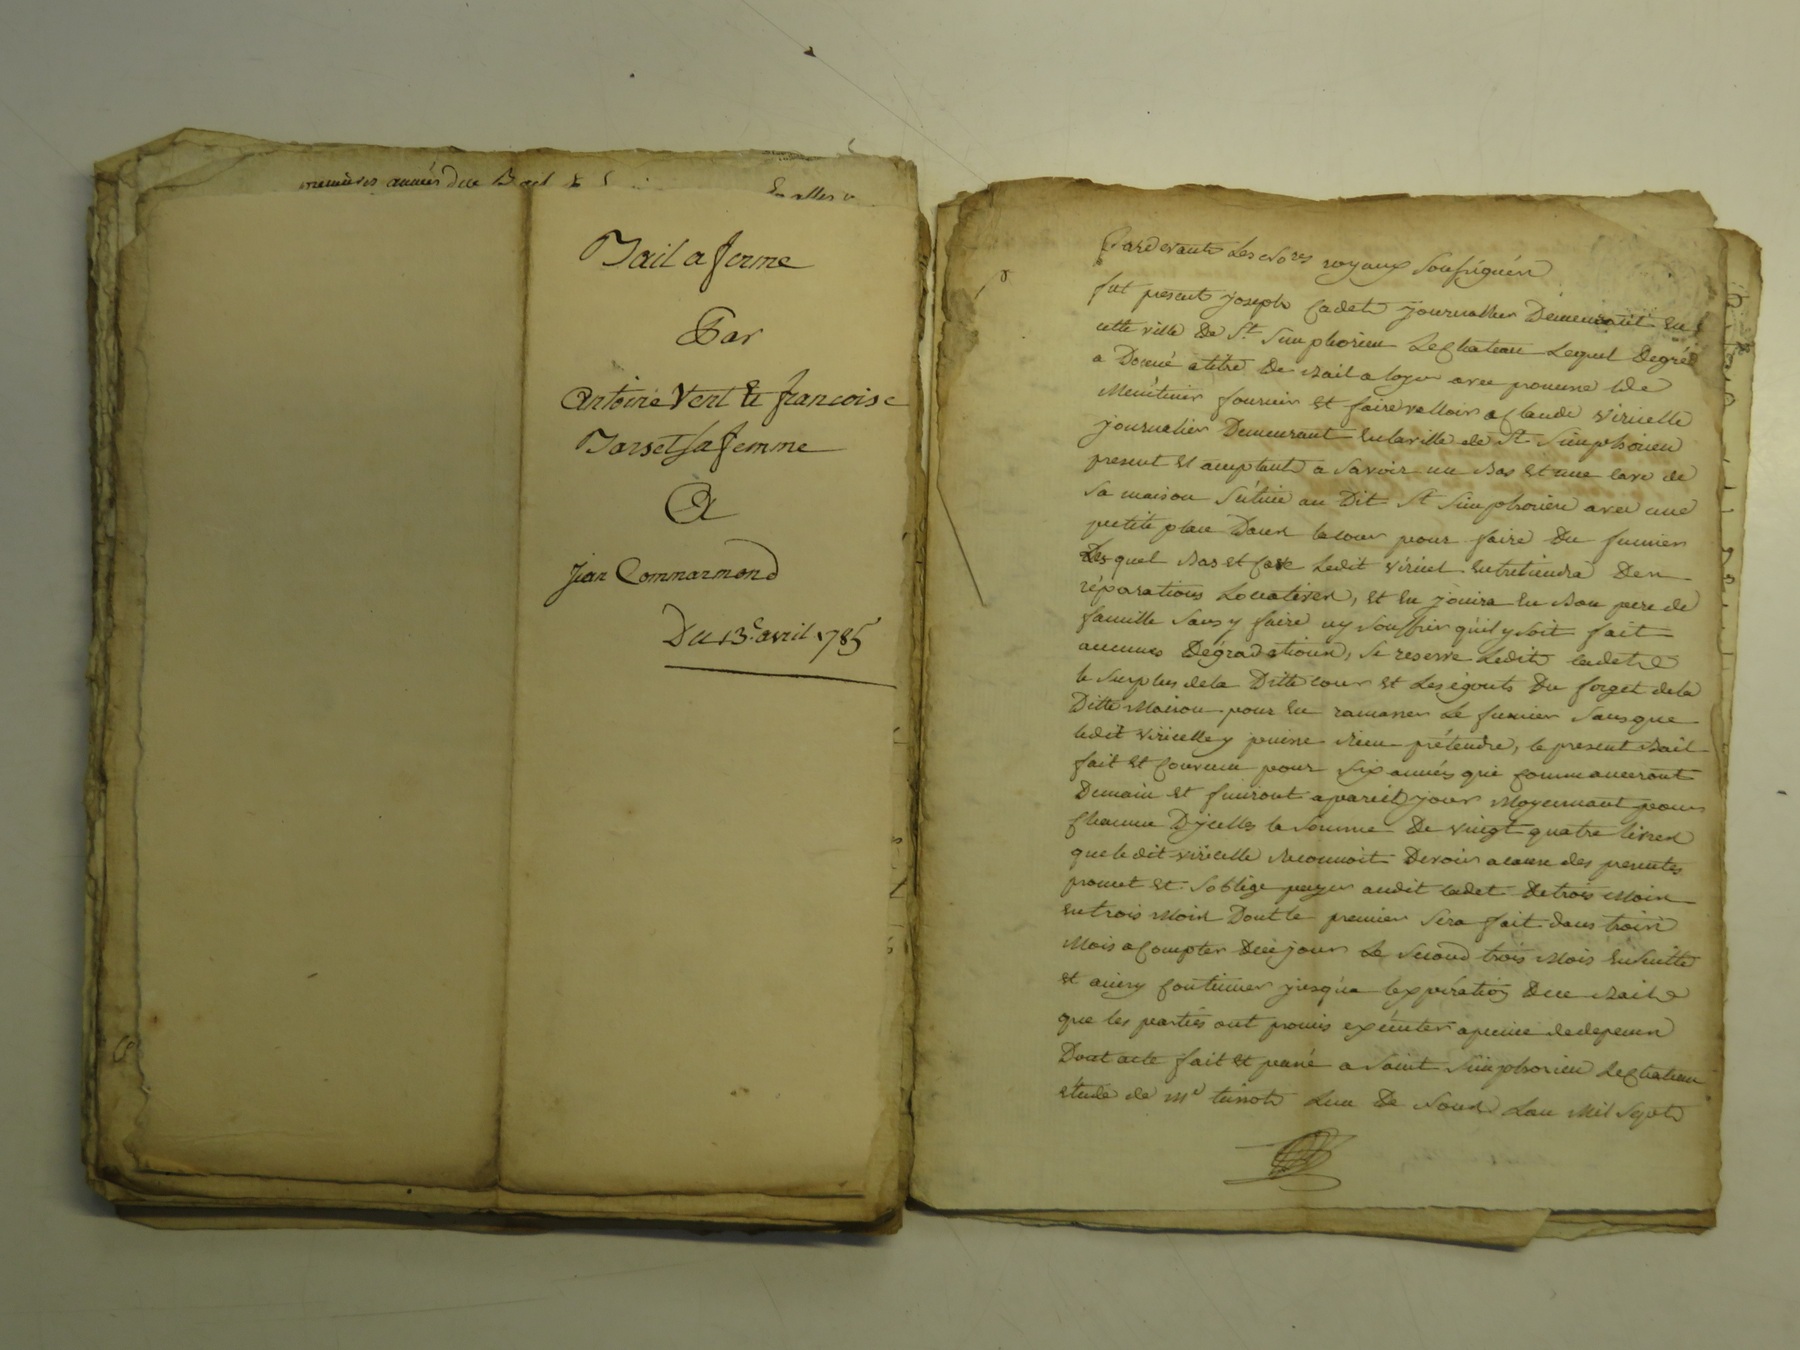 premieres années du Bail
Bail a ferme
Par
Antoine Vert et francoise
Barset sa femme
A
Jean Commarmond
Du 13e avril 1785
Pardevant Les No.res royaux Soussignéss
fut present joseph Cadet journallier Demeurant en
cette ville De St. Simphorien LeChateau Lequel Degré
a Donné a titre De Bail a loyer avec promesse De
Maintenir fournir et faire valloir a Claude viricelle
journalier Demeurant en la ville de St. Simphorien
present et acceptant a Savoir un Bas et une Cave de
Sa maison Scitüée au Dit St. Simphorien avec une
petite place Dans la cour pour faire Du fumier
Desquel Bas et Cave Ledit viricel entretiendra Des
réparations Locatives, et en jouira en Bon pere de
famille Sans y faire ny Souffrir qu'il y Soit fait
aucunes Dégradations, Se reserve Ledit Cadet
le Surplus de la Ditte cour et Les égouts Du forget de la
Ditte Maison pour en ramasser Le fumier Sans que
ledit viricelle y puisse Rien prétendre, le present Bail
fait et Convenu pour Six années qui Commanceront
Demain et finiront a pareil jour Moyennant pour
Chacune D'ycelles la Somme De vingt quatre livres
que ledit viricelle Reconnoit Devoir a cause des presentes
promet et S'oblige payer audit Cadet De trois Mois
en trois Mois Dont le premier Sera fait dans trois
Mois a Compter De ce jour Le Second trois Mois ensuitte
et ainsy Continuer jusqu'a l'expiration Du Bail
que les parties ont promis exécuter a peine de depens
Dont acte fait et passé a Saint Simphorien LeChateau
étude de Me L'un De Nous L'an Mil Sept